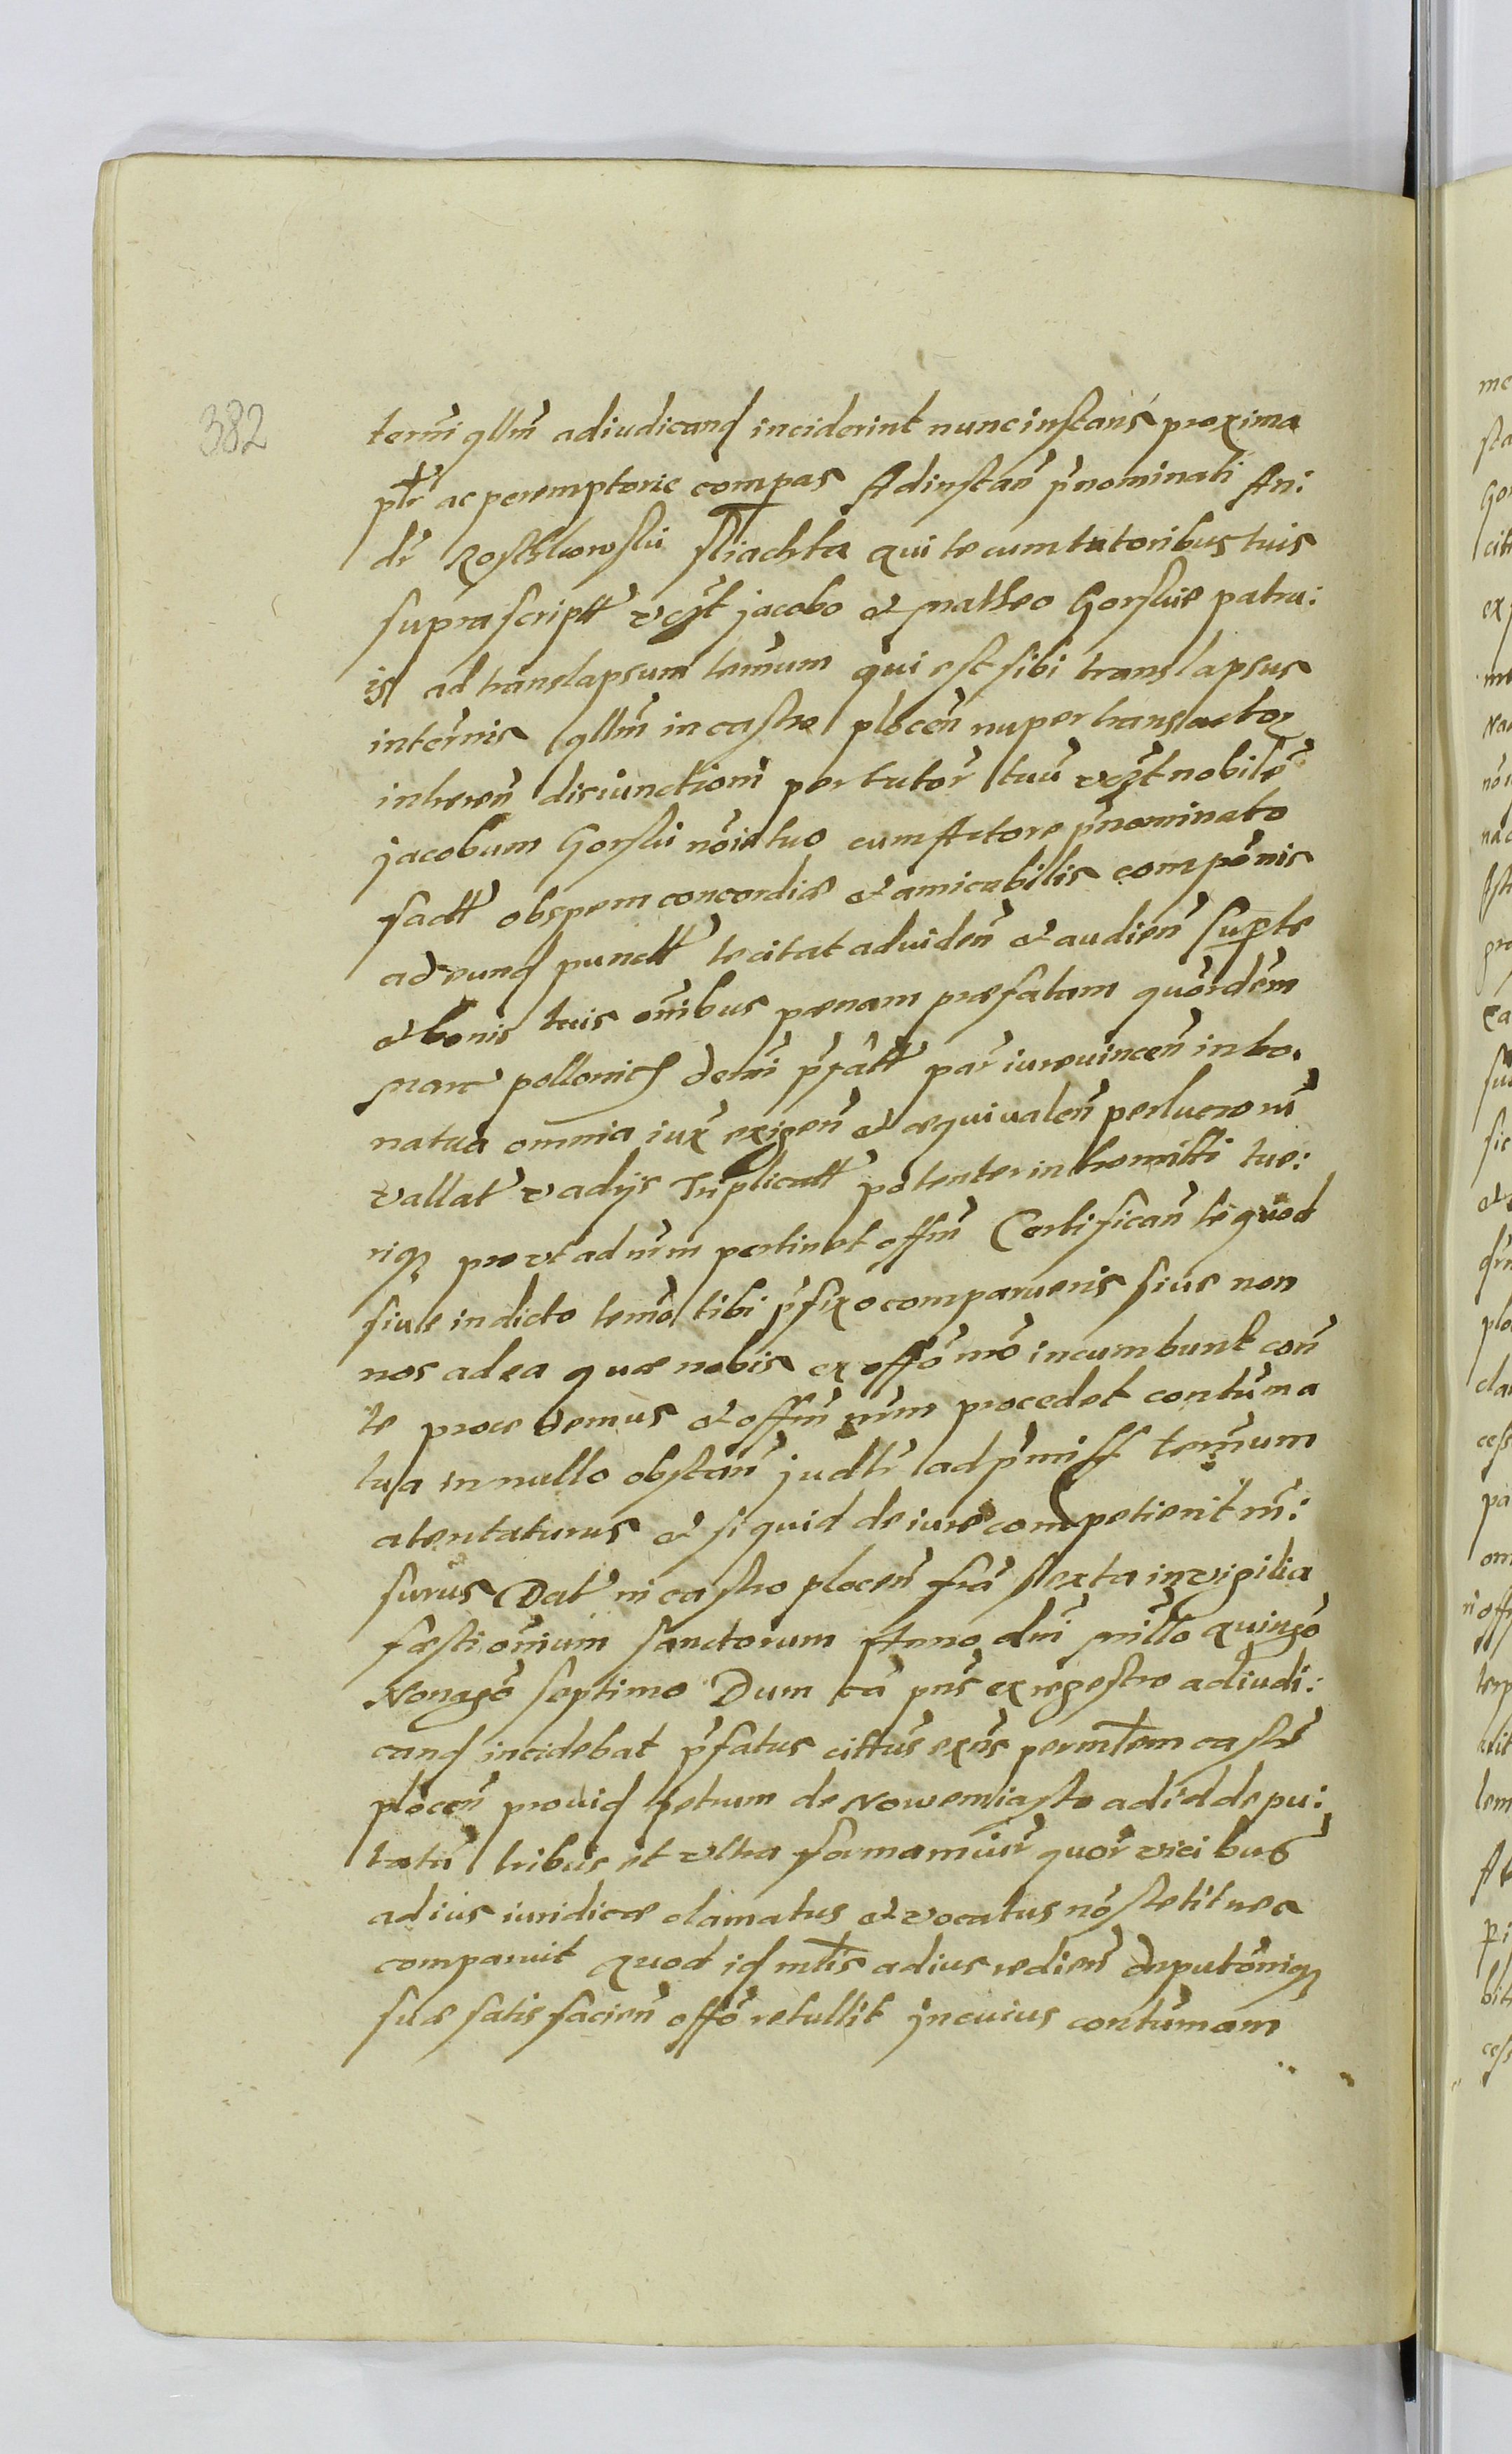 382
termi qllm adiudicand inciderint nuncinstans proxima
ptr ac peremptorie compas Adinstan pnominati An:
dr Rosthkowski sliachta qui te cum tutoribus tuis
suprascriptt vczt jacobo et Matheo Gorskie patru:
is ad translapsum termum qui est sibi translapsus
in ternis qllm in castro plocen nuper transactor
inheren disiunctioni per tutor tuu vczt nobile
jacobum Gorski noie tuo cum Actore pnominato
factt ob spem concordiæ et amicabilis componis
ad eund punctt te citat ad viden et audien sup te
et bonis tuis omibus pænam præfatam quordem
Marc pollonich detri pfatt par iureuincen in bo:
na tua omnia iux exigen et æquiualen per lucro ni
vallat vadijs Triplicatt potenter in tromitti tue:
riq provt ad nrm pertinet offm Certifican te quod
siue in dicto termo tibi pfixo comparueris siue non
nos ad ea quæ nobis ex offo nro incumbunt con
te procedemus et offm nrm procedet contuma
tua in nullo obstan judtr ad pmiss termum
atentaturus et si quid de iure competierit rn:
surus Dat in castro plocen fria sexta in vigilia
fæsti omium sanctorum Anno dni millo quingo
Nonagō septimo Dum ca pns ex regestro adiudi:
cand incidebat pfatus cittus exns per mtrem castr
plocen prouid petrum de Nowemiasto ad id depu:
tatu tribus et vltra forma m iur quor vicibus
ad ius iuridicæ clamatus et vocatus nō stetit nec
comparuit Quod id mtris ad ius redien Deputoniq
suæ satis facien offō retullit jn cuius contumam